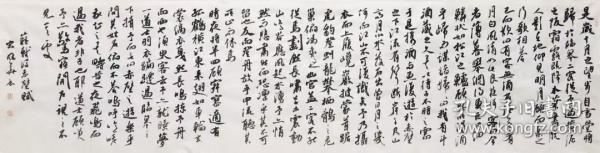 是歲十月之望步自雪堂將
歸於臨皋二客從予過黃泥
之坂霜露既降木葉盡脫
人影在地仰見明月顧而樂之
行歌相答
已而歎曰有客無酒有酒無肴
月白風清如此良夜何客曰今
者薄暮舉網得魚巨口細鱗
狀如松江之鱸顧安所得酒
乎歸而謀諸婦婦曰我有斗
酒藏之久矣以待子不時之需
於是攜酒與魚復遊於赤壁
之下江流有聲斷岸千尺山
高月小水落石出曾日月之幾何
而江山不可復識矣予乃攝
衣而上履巉巖披蒙茸踞
虎豹登虬龍攀棲鶻之危
巢俯馮夷之幽宮蓋二客不
能從焉劃然長嘯草木震動
山鳴谷應風起水湧予亦悄
然而悲肅然而恐凜乎其不可
留也反而登舟放乎中流聽其
所止而休焉
時夜將半四顧寂寥適有
孤鶴橫江東來翅如車輪玄
裳縞衣戛然長鳴掠予舟
而西也須臾客去予亦就睡夢
一道士羽衣蹁躚過臨皋之
下揖予而言曰赤壁之遊樂乎
問其姓名俯而不答嗚呼噫嘻
我知之矣疇昔之夜飛鳴而
過我者非子也耶道士顧笑
予亦驚寤開戶視之不
見其處
蘇軾後赤壁賦
孔夫子旧书网